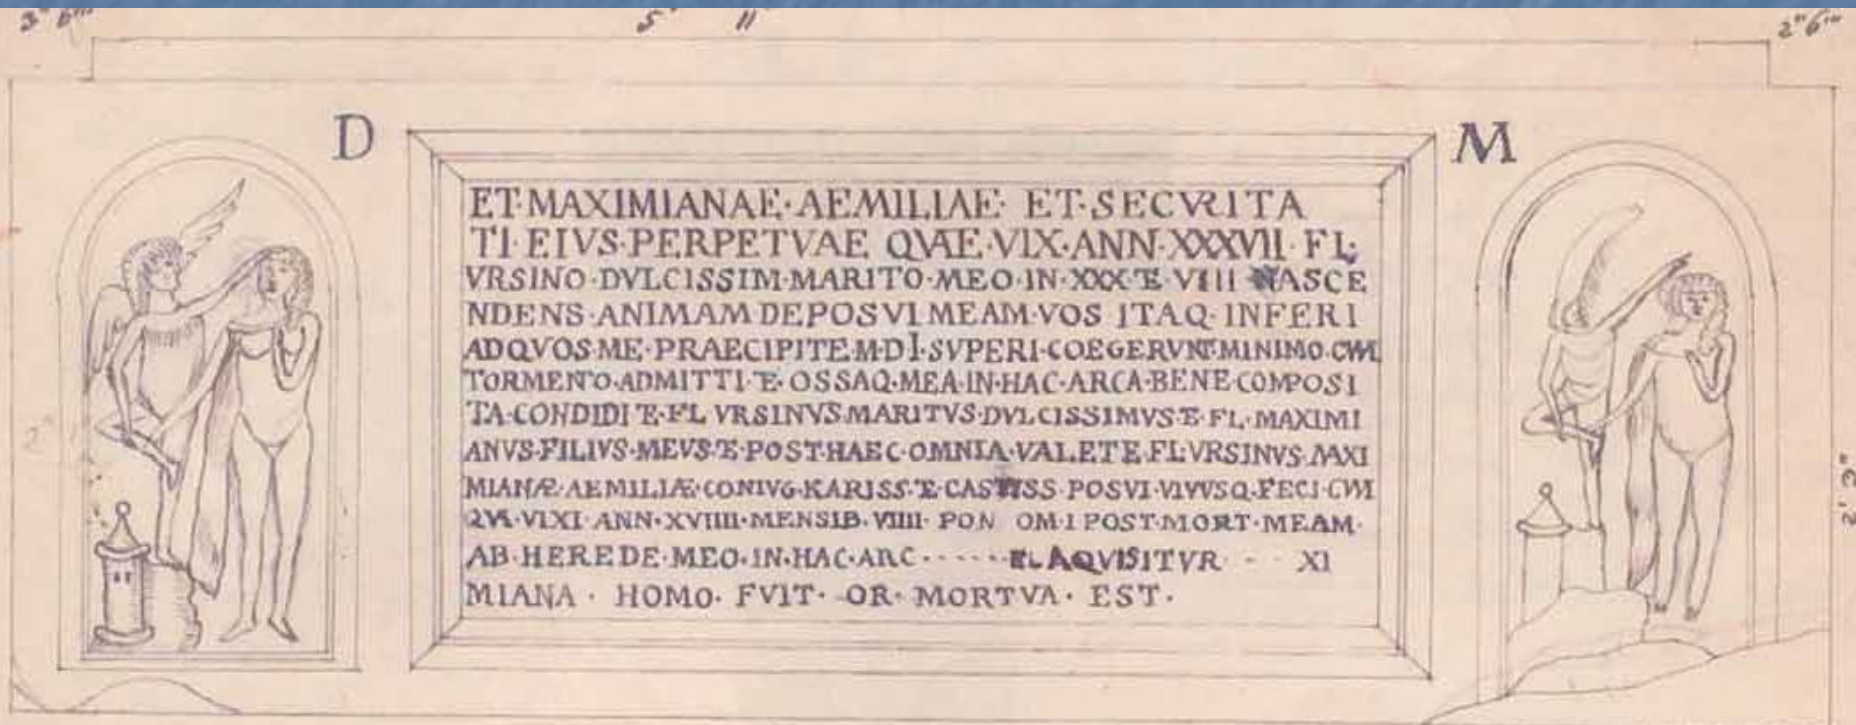 3" 6'" 5' 11" 2" 6'"
D M
ET·MAXIMIANAE·AEMILIAE· ET·SECVRITA
TI·EIVS·PERPETVAE QVAE·VIX·ANN·XXXVII·FL·
VRSINO·DVLCISSIM·MARITO·MEO·IN·XXX·E·VIIII NASCE
NDENS·ANIMAM DEPOSVI MEAM·VOS ITAQ·INFERI
ADQVOS·ME·PRAECIPITEM·DI·SVPERI·COEGERVNT·MINIMO·CVM
TORMENTO·ADMITTI·E·OSSAQ·MEA·IN·HAC·ARCA·BENE·COMPOSI
TA·CONDIDI E·FL VRSINVS·MARITVS·DVLCISSIMVS·E·FL·MAXIMI
ANVS·FILIVS·MEVS·E·POST·HAEC·OMNIA·VALETE·FL·VRSINVS·MAXI
MIANÆ·AEMILIÆ·CONIVG·KARISS·E·CASTISS·POSVI·VIVVSQ·FECI·CVM
QVA·VIXI·ANN·XVIIII·MENSIB·VIIII· PON OM·I POST·MORT·MEAM·
AB·HEREDE·MEO·IN·HAC·ARC······ AQVISITVR - - XI
MIANA · HOMO· FVIT· OR· MORTVA· EST·